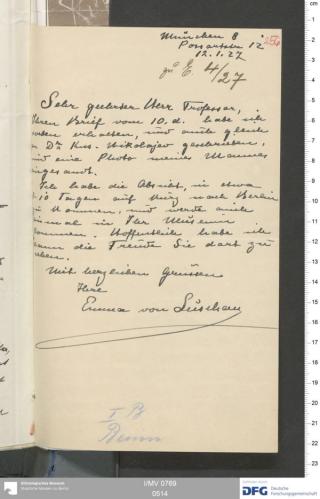 München 8
Possartstr 12
12.1.27
zu E. 4/27
Sehr geehrter Herr Professor,
Ihren Brief vom 10. d. habe ich
erhalten, und auch gleich
an Dr Kus. Nikolajev geschrieben,
und eine Photo meines Mannes
eingesandt.
Ich habe die Absicht, in etwa
10 Tagen auf kurz nach Berlin
zu kommen, und werde auch
einmal in Ihr Museum
kommen. Hoffentlich habe ich
dann die Freude Sie dort zu
sehen.
Mit herzlichen Grüssen
Ihre
Emma von Luschan
I B
I/MV 0769
0514
Ethnologisches Museum
Staatliche Museen zu Berlin
Gefördert durch
DFG Deutsche
Forschungsgemeinschaft
cm
1
2
3
4
5
6
7
8
9
10
11
12
13
14
15
16
17
18
19
20
21
22
23